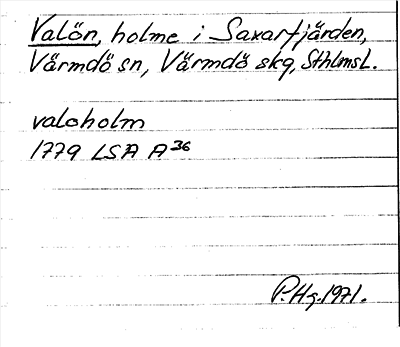 Valön, holme i Saxarfjärden,
Värmdö sn, Värmdö skg, Sthlmsl.
valoholm
1779 LSA A 36
P.Hg. 1971.